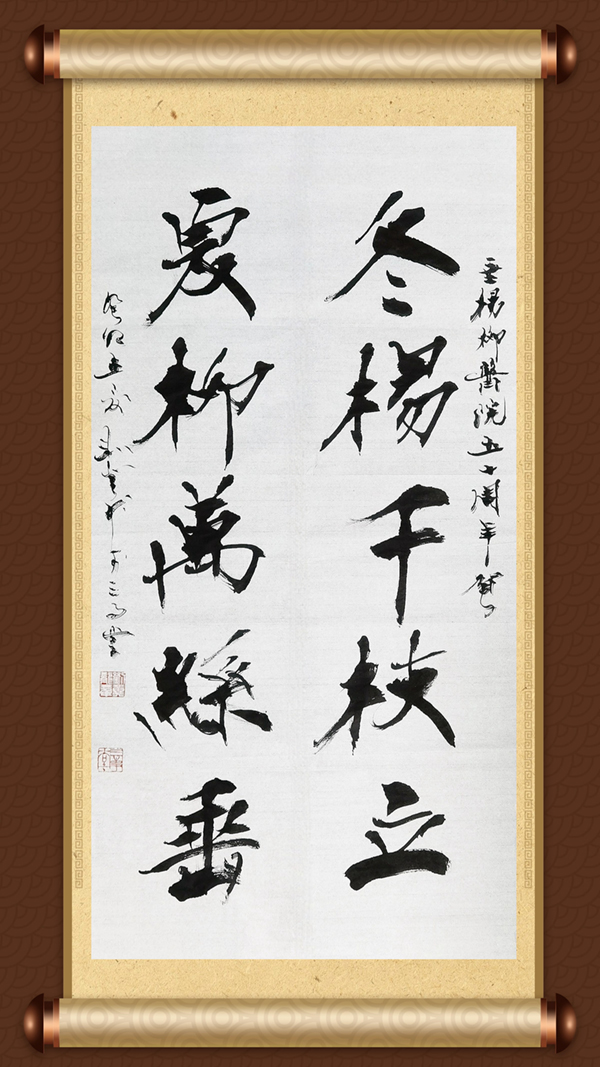 垂楊柳醫院五十周年賀
冬楊千枝立
夏柳萬縧垂
癸巳